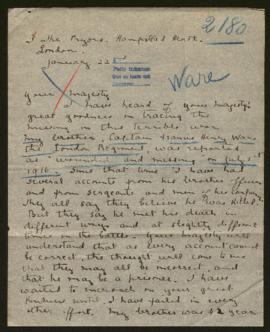 2180
The Pryors, Hampstead Heath,
London.
January 22
Ware
Your Majesty
I have heard of your Majesty's
great goodness in tracing the
missing in this terrible war.
My brother, Captain Francis Henry Ware,
the London Regiment, was reported
as "wounded and missing on July 1
1916." Since that time I have had
several accounts from his brother officers
and from sergeants and men in his company.
They all say they believe he "was killed"
But they say he met his death in
different ways and at slightly different
times in the battle. Your Majesty will
understand that as every account cannot
be correct, the thought will come to me
that they may all be incorrect, and
that he may be a prisoner. I have
waited to encroach on your great
kindness until I have failed in every
other effort. My brother was 42 years